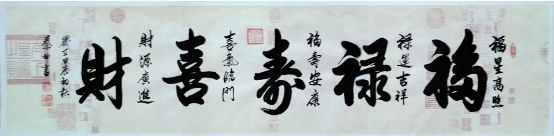 福
福星高照
禄
禄运吉祥
寿
福壽安康
喜
喜氣临門
財
財源廣進